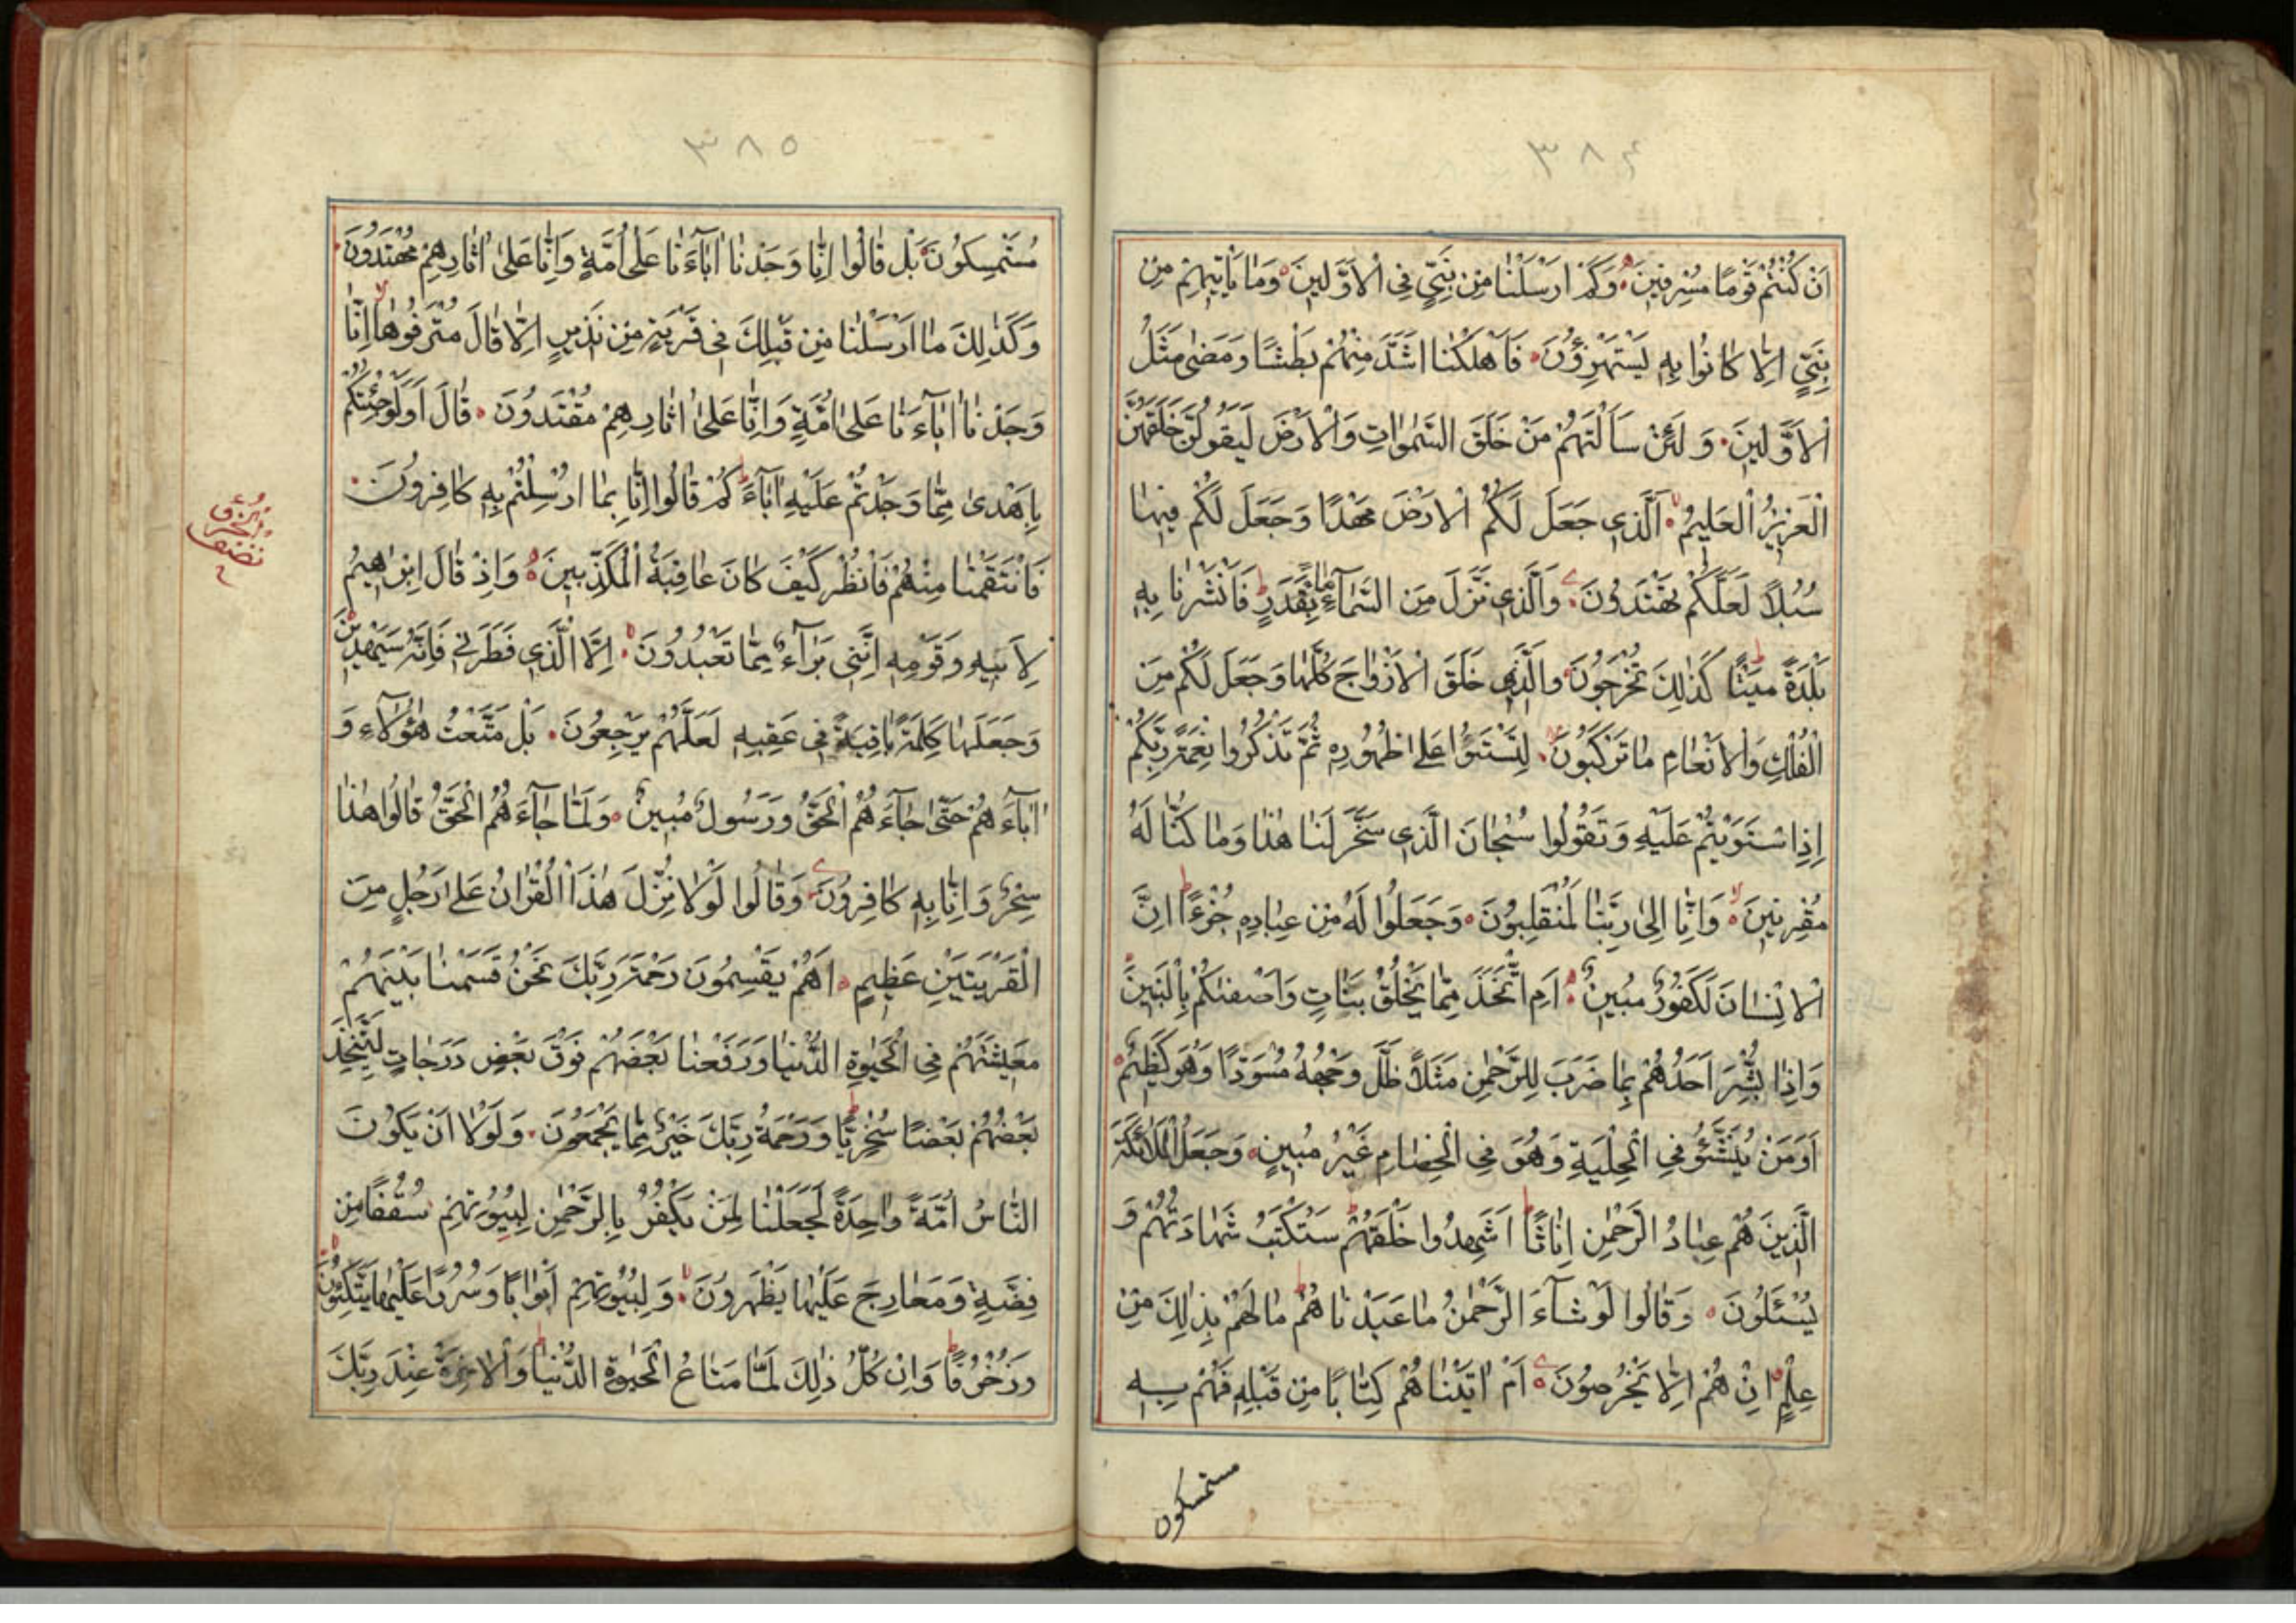 ٣٨٤
اَنْ كُنْتُمْ قَوْمًا مُسْرِفِينَ وَكَمْ اَرْسَلْنَا مِنْ نَبِيٍّ فِي الْاَوَّلِينَ وَمَا يَاْتِيهِمْ مِنْ
نَبِيٍّ اِلَّا كَانُوا بِهِ يَسْتَهْزِؤُنَ فَاَهْلَكْنَا اَشَدَّ مِنْهُمْ بَطْشًا وَمَضٰى مَثَلُ
الْاَوَّلِينَ وَلَئِنْ سَاَلْتَهُمْ مَنْ خَلَقَ السَّمٰوَاتِ وَالْاَرْضَ لَيَقُولُنَّ خَلَقَهُنَّ
الْعَزِيزُ الْعَلِيمُ اَلَّذِي جَعَلَ لَكُمُ الْاَرْضَ مَهْدًا وَجَعَلَ لَكُمْ فِيهَا
سُبُلًا لَعَلَّكُمْ تَهْتَدُونَ وَالَّذِي نَزَّلَ مِنَ السَّمَآءِ مَاءً بِقَدَرٍ فَاَنْشَرْنَا بِهِ
بَلْدَةً مَيْتًا كَذٰلِكَ تُخْرَجُونَ وَالَّذِي خَلَقَ الْاَزْوَاجَ كُلَّهَا وَجَعَلَ لَكُمْ مِنَ
الْفُلْكِ وَالْاَنْعَامِ مَا تَرْكَبُونَ لِتَسْتَوُا عَلٰى ظُهُورِهِ ثُمَّ تَذْكُرُوا نِعْمَةَ رَبِّكُمْ
اِذَا اسْتَوَيْتُمْ عَلَيْهِ وَتَقُولُوا سُبْحَانَ الَّذِي سَخَّرَ لَنَا هٰذَا وَمَا كُنَّا لَهُ
مُقْرِنِينَ وَاِنَّا اِلٰى رَبِّنَا لَمُنْقَلِبُونَ وَجَعَلُوا لَهُ مِنْ عِبَادِهِ جُزْءًا اِنَّ
الْاِنْسَانَ لَكَفُورٌ مُبِينٌ اَمِ اتَّخَذَ مِمَّا يَخْلُقُ بَنَاتٍ وَاَصْفٰىكُمْ بِالْبَنِينَ
وَاِذَا بُشِّرَ اَحَدُهُمْ بِمَا ضَرَبَ لِلرَّحْمٰنِ مَثَلًا ظَلَّ وَجْهُهُ مُسْوَدًّا وَهُوَ كَظِيمٌ
اَوَمَنْ يُنَشَّؤُ فِي الْحِلْيَةِ وَهُوَ فِي الْخِصَامِ غَيْرُ مُبِينٍ وَجَعَلُوا الْمَلٰئِكَةَ
الَّذِينَ هُمْ عِبَادُ الرَّحْمٰنِ اِنَاثًا اَشَهِدُوا خَلْقَهُمْ سَتُكْتَبُ شَهَادَتُهُمْ وَ
يُسْئَلُونَ وَقَالُوا لَوْ شَآءَ الرَّحْمٰنُ مَا عَبَدْنَاهُمْ مَا لَهُمْ بِذٰلِكَ مِنْ
عِلْمٍ اِنْ هُمْ اِلَّا يَخْرُصُونَ اَمْ اٰتَيْنَاهُمْ كِتَابًا مِنْ قَبْلِهِ فَهُمْ بِهِ
مستمسكون
٣٨٥
مُسْتَمْسِكُونَ بَلْ قَالُوا اِنَّا وَجَدْنَا اٰبَآءَنَا عَلٰى اُمَّةٍ وَاِنَّا عَلٰى اٰثَارِهِمْ مُهْتَدُونَ
وَكَذٰلِكَ مَا اَرْسَلْنَا مِنْ قَبْلِكَ فِي قَرْيَةٍ مِنْ نَذِيرٍ اِلَّا قَالَ مُتْرَفُوهَا اِنَّا
وَجَدْنَا اٰبَآءَنَا عَلٰى اُمَّةٍ وَاِنَّا عَلٰى اٰثَارِهِمْ مُقْتَدُونَ قَالَ اَوَلَوْ جِئْتُكُمْ
بِاَهْدٰى مِمَّا وَجَدْتُمْ عَلَيْهِ اٰبَآءَكُمْ قَالُوا اِنَّا بِمَا اُرْسِلْتُمْ بِهِ كَافِرُونَ
فَانْتَقَمْنَا مِنْهُمْ فَانْظُرْ كَيْفَ كَانَ عَاقِبَةُ الْمُكَذِّبِينَ وَاِذْ قَالَ اِبْرٰهِيمُ
لِاَبِيهِ وَقَوْمِهِ اِنَّنِي بَرَآءٌ مِمَّا تَعْبُدُونَ اِلَّا الَّذِي فَطَرَنِي فَاِنَّهُ سَيَهْدِينِ
وَجَعَلَهَا كَلِمَةً بَاقِيَةً فِي عَقِبِهِ لَعَلَّهُمْ يَرْجِعُونَ بَلْ مَتَّعْتُ هٰؤُلَآءِ وَ
اٰبَآءَهُمْ حَتّٰى جَآءَهُمُ الْحَقُّ وَرَسُولٌ مُبِينٌ وَلَمَّا جَآءَهُمُ الْحَقُّ قَالُوا هٰذَا
سِحْرٌ وَاِنَّا بِهِ كَافِرُونَ وَقَالُوا لَوْلَا نُزِّلَ هٰذَا الْقُرْاٰنُ عَلٰى رَجُلٍ مِنَ
الْقَرْيَتَيْنِ عَظِيمٍ اَهُمْ يَقْسِمُونَ رَحْمَةَ رَبِّكَ نَحْنُ قَسَمْنَا بَيْنَهُمْ
مَعِيشَتَهُمْ فِي الْحَيٰوةِ الدُّنْيَا وَرَفَعْنَا بَعْضَهُمْ فَوْقَ بَعْضٍ دَرَجَاتٍ لِيَتَّخِذَ
بَعْضُهُمْ بَعْضًا سُخْرِيًّا وَرَحْمَةُ رَبِّكَ خَيْرٌ مِمَّا يَجْمَعُونَ وَلَوْلَا اَنْ يَكُونَ
النَّاسُ اُمَّةً وَاحِدَةً لَجَعَلْنَا لِمَنْ يَكْفُرُ بِالرَّحْمٰنِ لِبُيُوتِهِمْ سُقُفًا مِنْ
فِضَّةٍ وَمَعَارِجَ عَلَيْهَا يَظْهَرُونَ وَلِبُيُوتِهِمْ اَبْوَابًا وَسُرُرًا عَلَيْهَا يَتَّكِئُونَ
وَزُخْرُفًا وَاِنْ كُلُّ ذٰلِكَ لَمَّا مَتَاعُ الْحَيٰوةِ الدُّنْيَا وَالْاٰخِرَةُ عِنْدَ رَبِّكَ